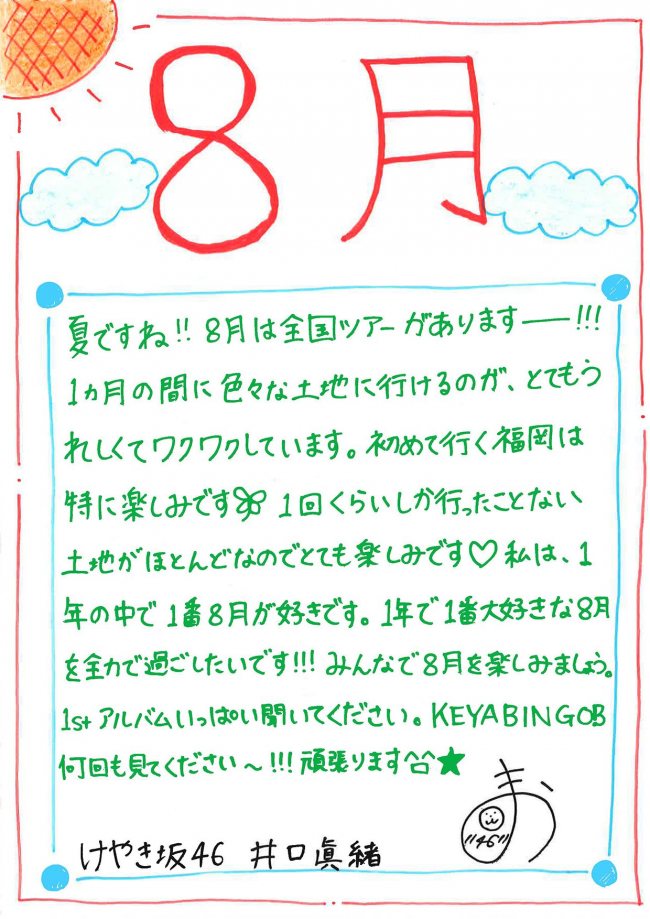 8月
夏ですね!! 8月は全国ツアーがあります――!!!
1ヵ月の間に色々な土地に行けるのが、とてもう
れしくてワクワクしています。初めて行く福岡は
特に楽しみです 1回くらいしか行ったことない
土地がほとんどなのでとても楽しみです♡私は、1
年の中で1番8月が好きです。1年で1番大好きな8月
を全力で過ごしたいです!!!みんなで8月を楽しみましょう。
1stアルバムいっぱい聞いてください。KEYABINGOも
何回も見てください～!!!頑張ります^□^★
けやき坂46 井口眞緒
まお
"46"